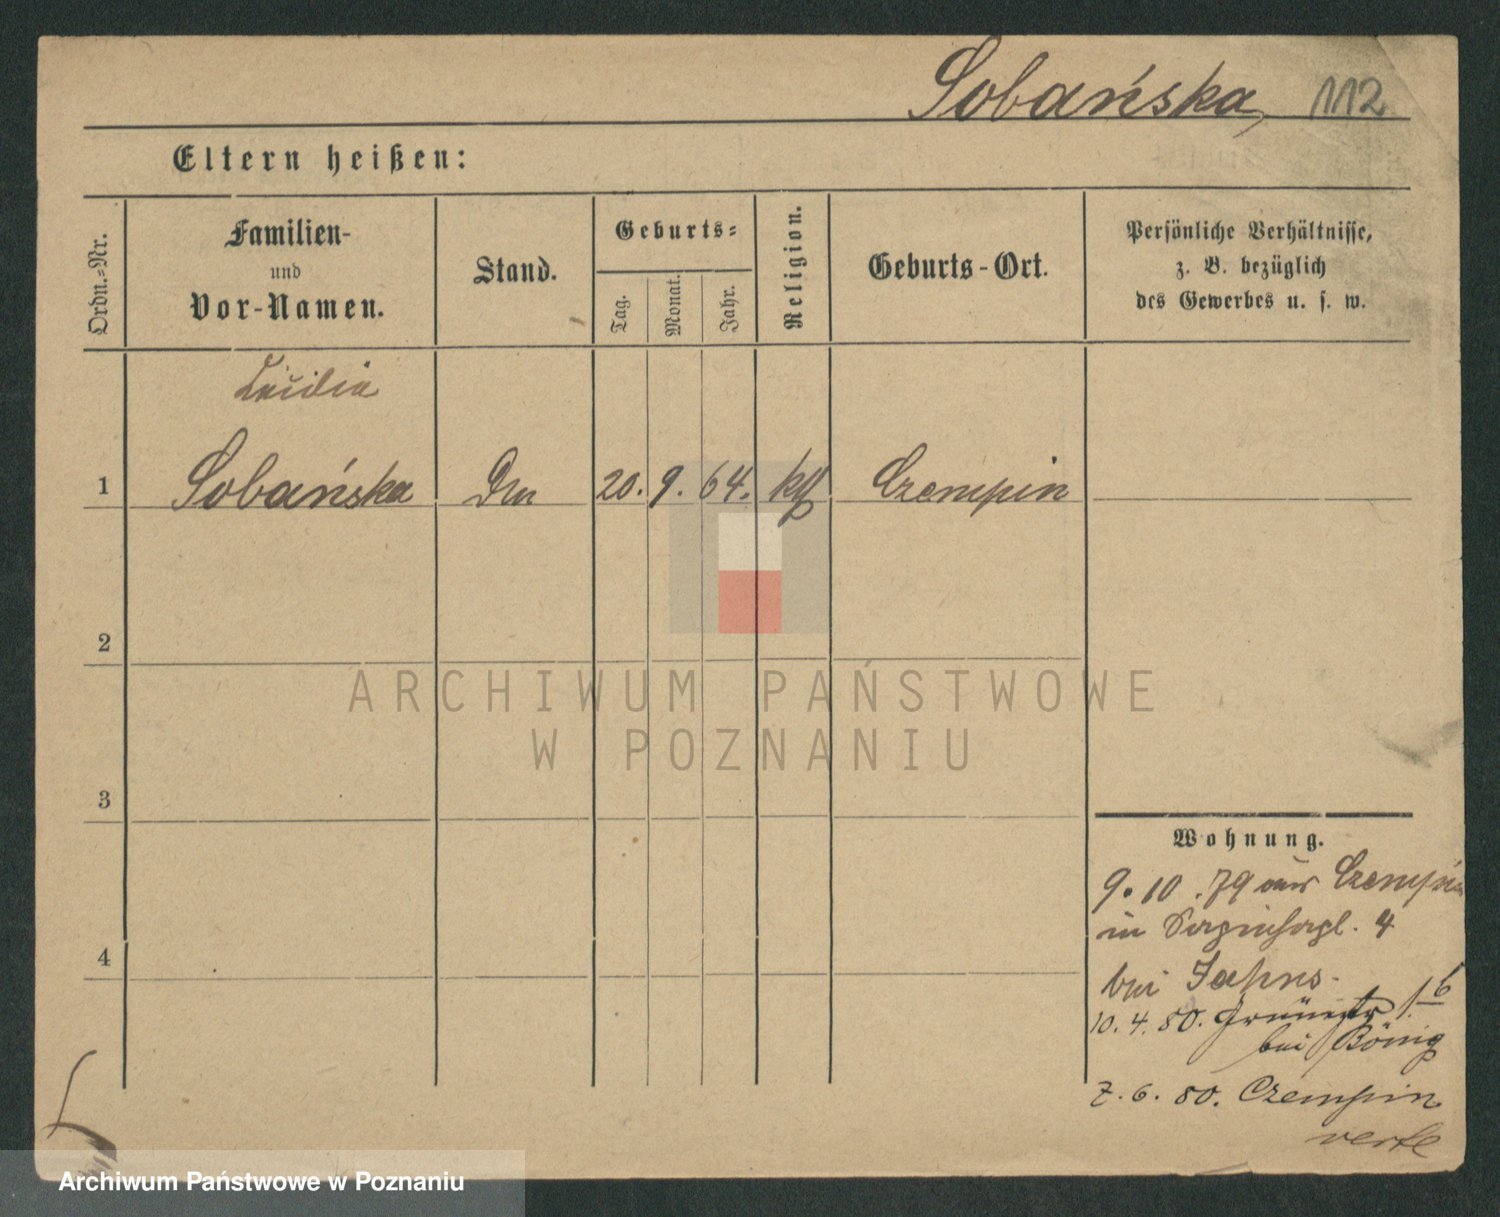 Sobańska, 112
Eltern heißen:
Ordn.=Nr.
Familien-
und
Vor-Namen.
Stand.
Geburts=
Tag.
Monat.
Jahr.
Religion.
Geburts-Ort.
Persönliche Verhältnisse,
z. B. bezüglich
des Gewerbes u. s. w.
1 Sobańska 20. 9. 64. Czempin
2
ARCHIWUM PAŃSTWOWE
W POZNANIU
3
4
Wohnung.
9. 10. 79 aus Czempin
in 4
bei
10. 4. 80. Grünestr 1.
bei
7. 6. 80. Czempin
verte
Archiwum Państwowe w Poznaniu